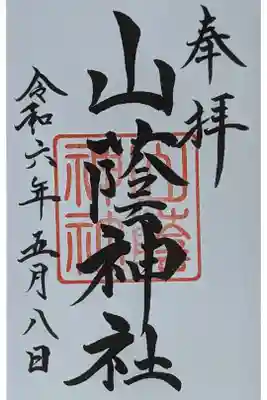 奉拝
山蔭神社
山蔭神社
令和六年五月八日